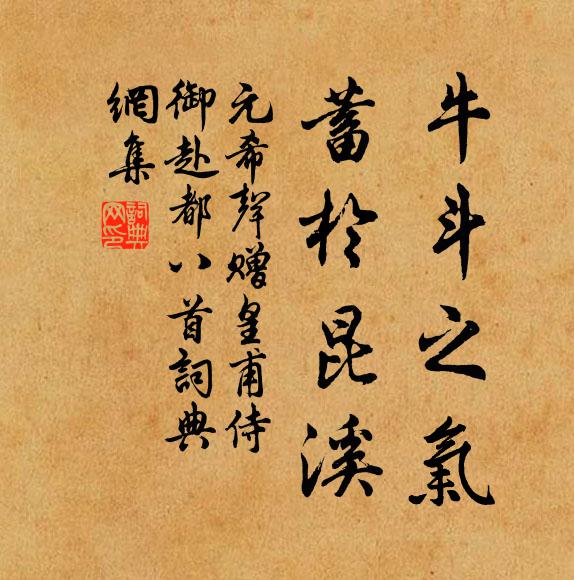 牛斗之氣
蓄於昆溪
元希聲贈皇甫侍
御赴都八首詞典
網集
詞典
网印